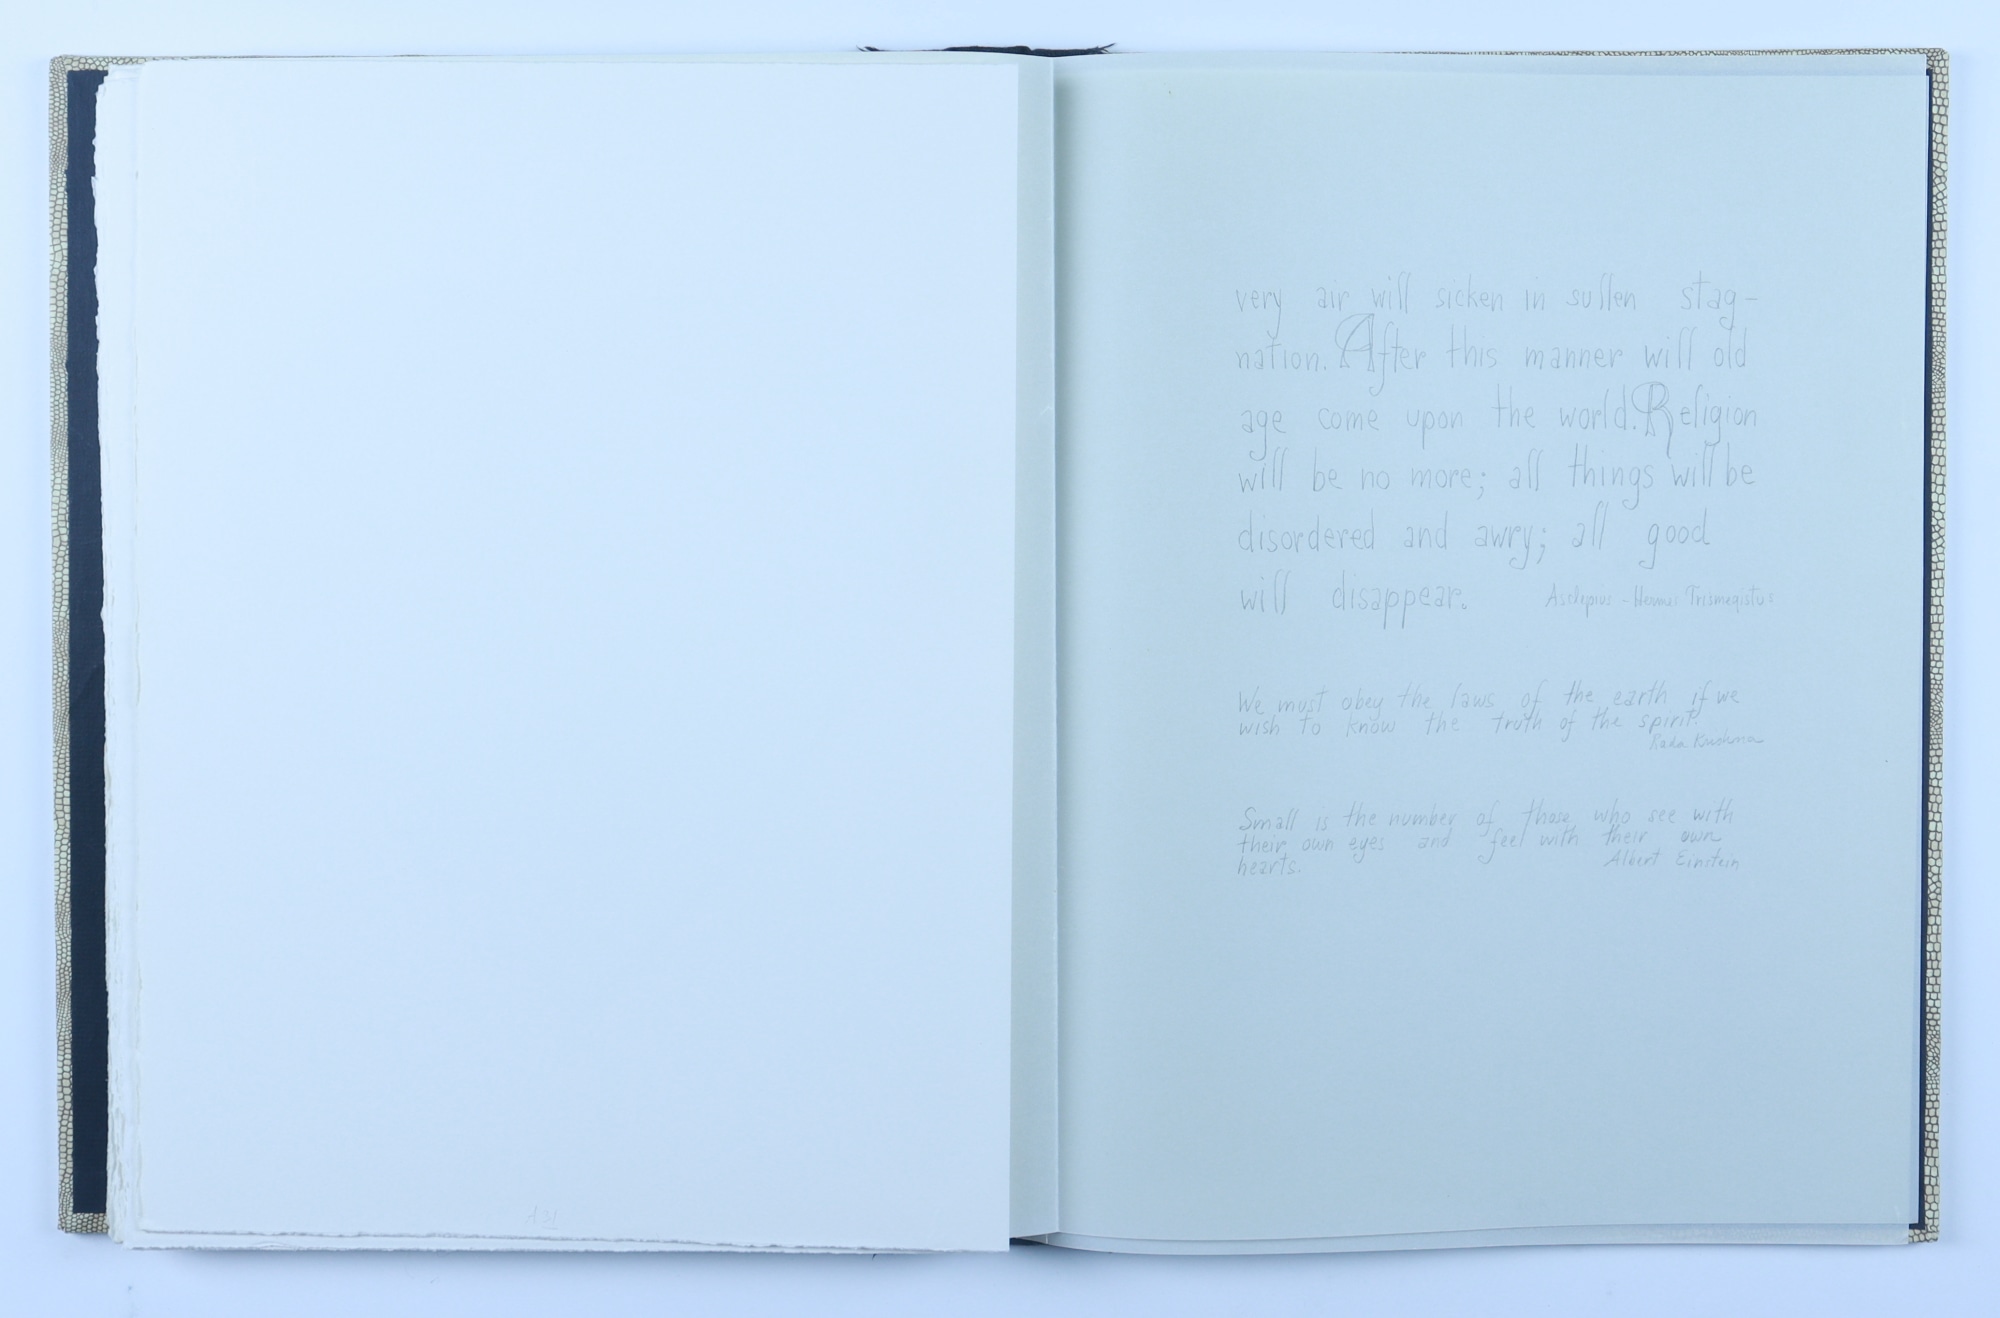 very air will sicken in sullen stag-
nation. After this manner will old
age come upon the world. Religion
will be no more; all things will be
disordered and awry; all good
will disappear. Asclepius - Hermes Trismegistus
We must obey the laws of the earth if we
wish to know the truth of the spirit.
Rada Krishna
Small is the number of those who see with
their own eyes and feel with their own
hearts. Albert Einstein